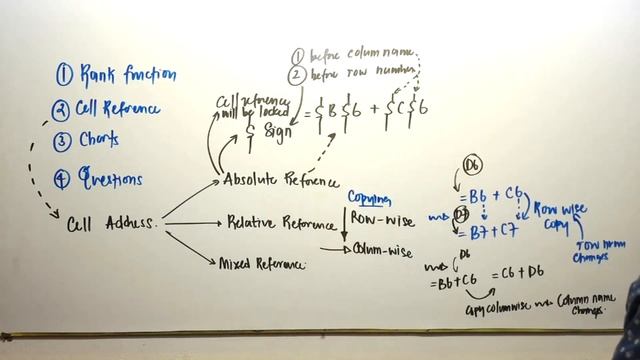 ① Rank function
② Cell Reference
③ Charts
④ Questions
Cell Address.
① before column name
② before row number
Cell reference
will be locked
$ Sign
= $B$6 + $C$6
Absolute Reference
Relative Reference
Mixed Reference.
Copying
Row-wise
Colum-wise
D6
= B6 + C6
D7
= B7 + C7
Row wise
Copy
row num
changes
D6
= B6 + C6
= C6 + D6
Copy columnwise
Column name
Changes.